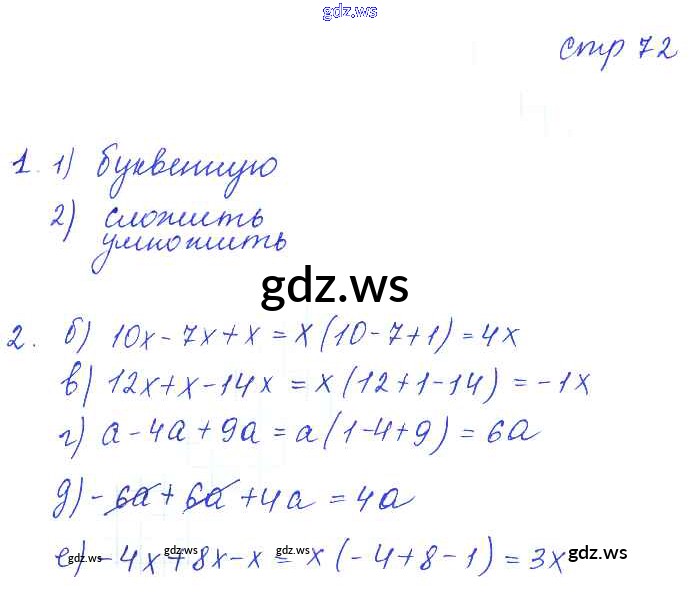 gdz.ws
стр 72
1. 1) буквенную
2) сложить
умножить
gdz.ws
2. б) 10x - 7x + x = x(10-7+1) = 4x
в) 12x + x - 14x = x(12+1-14) = -1x
г) a - 4a + 9a = a(1-4+9) = 6a
д) -6a + 6a + 4a = 4a
е) -4x + 8x - x = x(-4+8-1) = 3x
gdz.ws gdz.ws gdz.ws gdz.ws